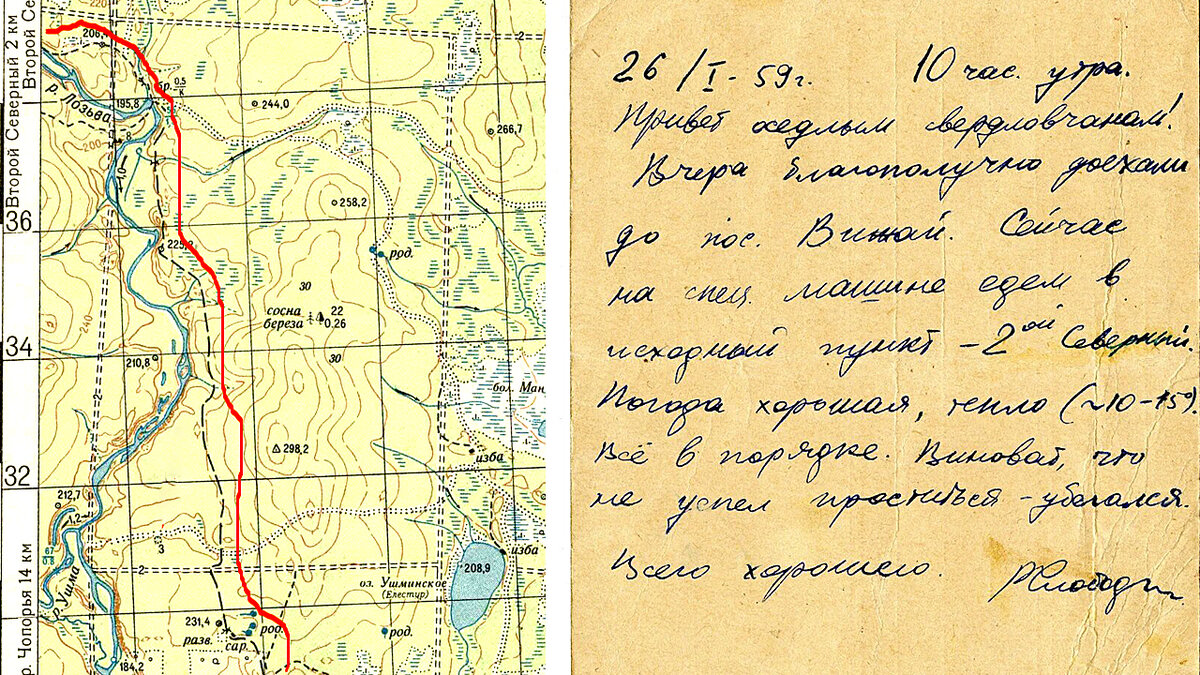 Второй Северный 2 км
Второй Се
36
34
32
р. Чопорья 14 км
206,
р. Лозьва
195,8
бр. 0,5
к
200
8
1,0
244,0
266,7
2
258,2
225,
род.
30
сосна
береза
22
0.26
30
240
210,8
2
бол. Ман
298,2
изба
212,7
1,2
67
0.8
3
2
изба
р. Ушма
оз. Ушминское
(Елестир)
208,9
231,4
разв.
сар.
род.
род.
184,2
26 / I - 59 г. 10 час. утра.
Привет оседлым свердловчанам!
Вчера благополучно доехали
до пос. Вижай. Сейчас
на спец. машине едем в
исходный пункт - 2ой Северный.
Погода хорошая, тепло (~10-15°)
Всё в порядке. Виноват, что
не успел проститься - убегался.
Всего хорошего. РСлободин